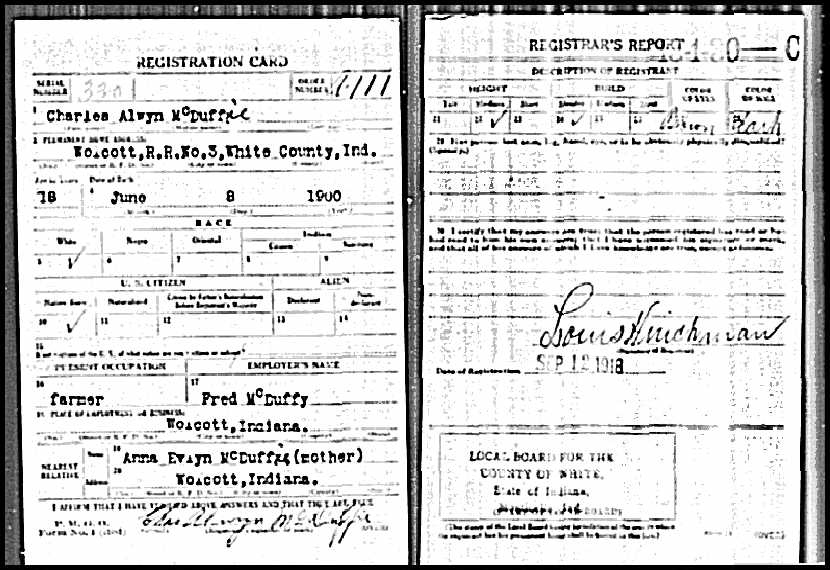 REGISTRATION CARD
SERIAL NUMBER 330
ORDER NUMBER
1 Charles Alwyn McDuffie
2 PERMANENT HOME ADDRESS:
Wolcott,R.R.No.3,White County,Ind.
Age in Years Date of Birth
18 June 8 1900
RACE
White Negro Oriental Indian
Citizen
5 ✓ 6 7 8 9
U. S. CITIZEN ALIEN
Native Born Naturalized Citizen by Father's Naturalization Before Registrant's Majority Declarant Non-declarant
10 ✓ 11 12 13 14
15
If not a citizen of the U. S., of what nation are you a citizen or subject?
PRESENT OCCUPATION EMPLOYER'S NAME
16 17
farmer Fred McDuffy
18 PLACE OF EMPLOYMENT OR BUSINESS:
Wolcott,Indiana.
NEAREST RELATIVE
Name 19 Anna Evlyn McDuffie(mother)
Address 20 Wolcott,Indiana.
I AFFIRM THAT I HAVE VERIFIED ABOVE ANSWERS AND THAT THEY ARE TRUE
P. M. G. O.
Form No. 1 (Red)
Chas Alwyn McDuffie
REGISTRAR'S REPORT
C
DESCRIPTION OF REGISTRANT
HEIGHT BUILD COLOR OF EYES COLOR OF HAIR
Tall Medium Short Slender Medium Stout
21 22 ✓ 23 24 ✓ 25 26
Dark
29 Has person lost arm, leg, hand, eye, or is he obviously physically disqualified?
(Specify.)
30 I certify that my answers are true; that the person registered has read or has had read to him his own answers; that I have witnessed his signature or mark, and that all of his answers of which I have knowledge are true, except as follows:
Louis
(Signature of Registrar)
Date of Registration SEP 12 1918
LOCAL BOARD FOR THE
COUNTY OF WHITE,
State of Indiana,
(The stamp of the Local Board having jurisdiction of the area in which the registrant has his permanent home shall be placed in this box.)